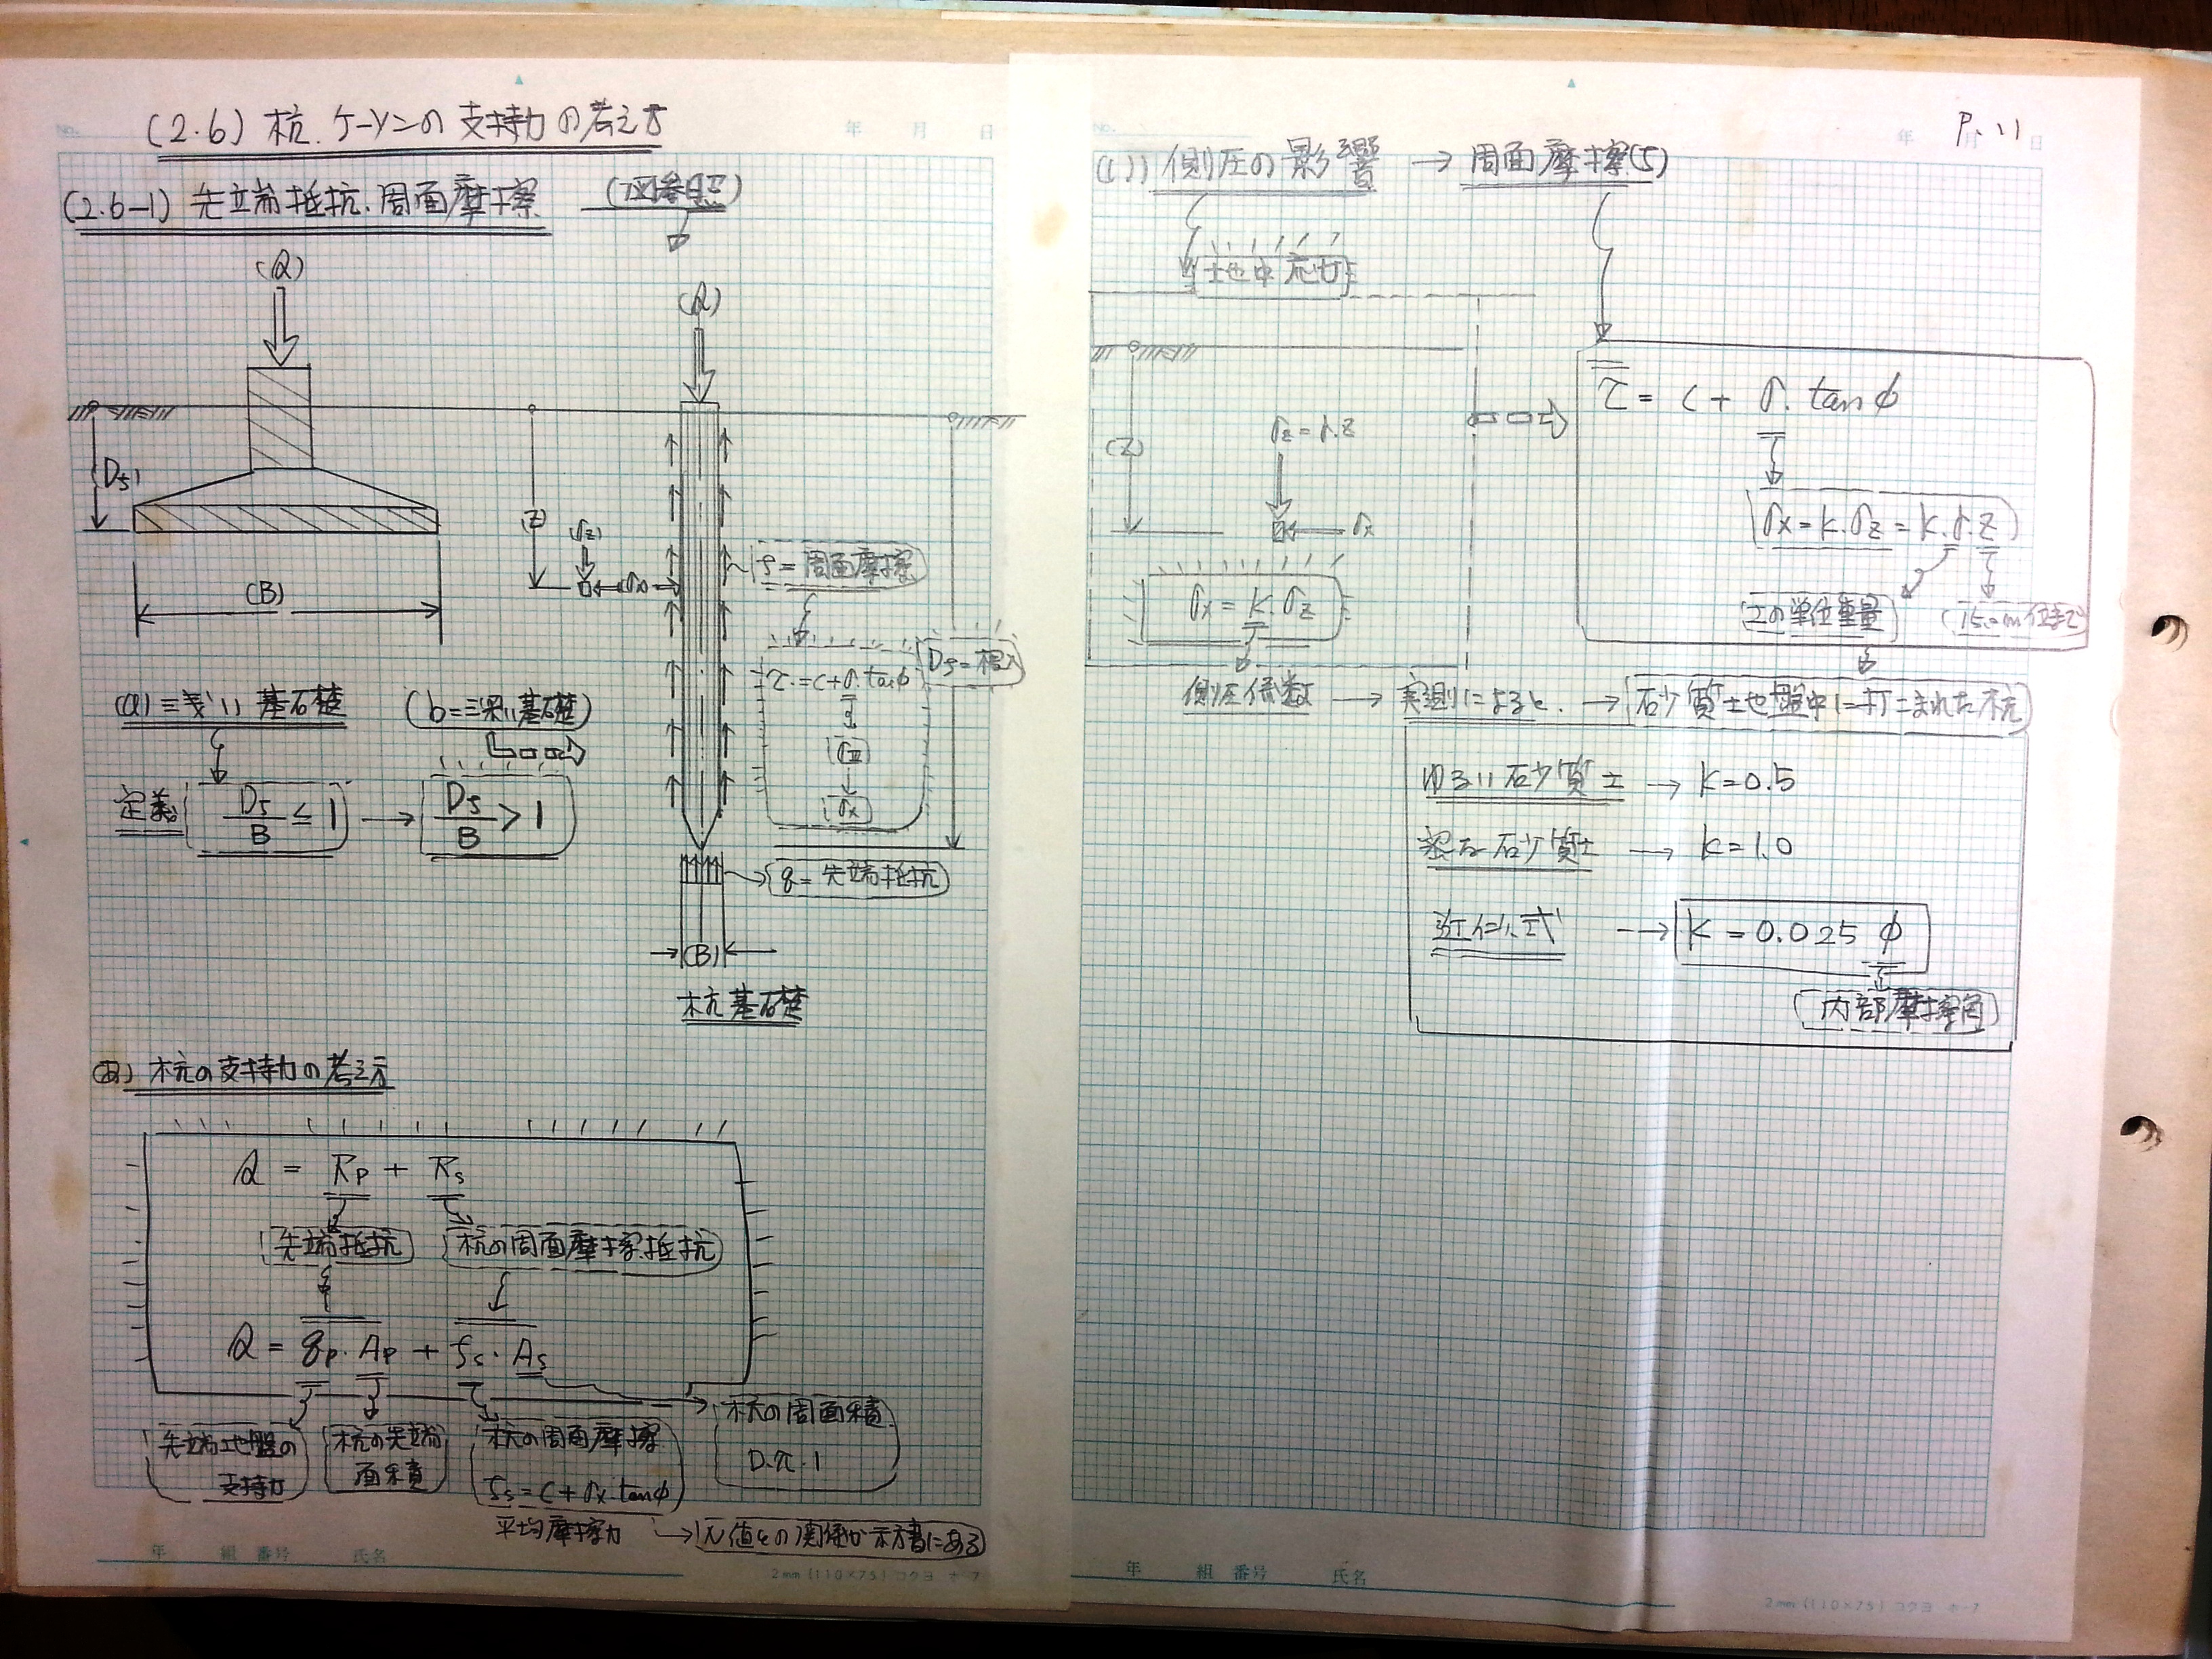 (2.6) 杭.ケーソンの支持力の考え方
(2.6-1) 先端抵抗.周面摩擦 (図参照)
(Q)
(Q)
(Df)
(Z)
(σz)
(B)
f=周面摩擦
Df=根入
τ=c+σ.tanφ
(σx)
(a)≡浅い基礎
(b≡深い基礎)
定義
Df/B ≤ 1 → Df/B > 1
q=先端抵抗
(B)
杭基礎
(あ) 杭の支持力の考え方
Q = Rp + Rs
先端抵抗
杭の周面摩擦抵抗
Q = qp.Ap + fs.As
先端地盤の支持力
杭の先端面積
杭の周面摩擦
fs=c+σx.tanφ
平均摩擦力
杭の周面積
D.π.l
N値との関係が示方書にある
年 組 番号 氏名
2mm (110×75) コクヨ ホ-7
No.
年 月 日
P.11
(い) 側圧の影響 → 周面摩擦(f)
地中応力
(Z)
σz=γ.Z
σx
σx=K.σz
τ= c+ σ.tanφ
σx=K.σz=K.γ.Z
土の単位重量
15.0m位まで
側圧係数 → 実測によると. → 砂質土地盤中に打こまれた杭
ゆるい砂質土 → K=0.5
密な砂質土 → K=1.0
近似式 → K=0.025φ
内部摩擦角
年 組 番号 氏名
2mm (110×75) コクヨ ホ-7